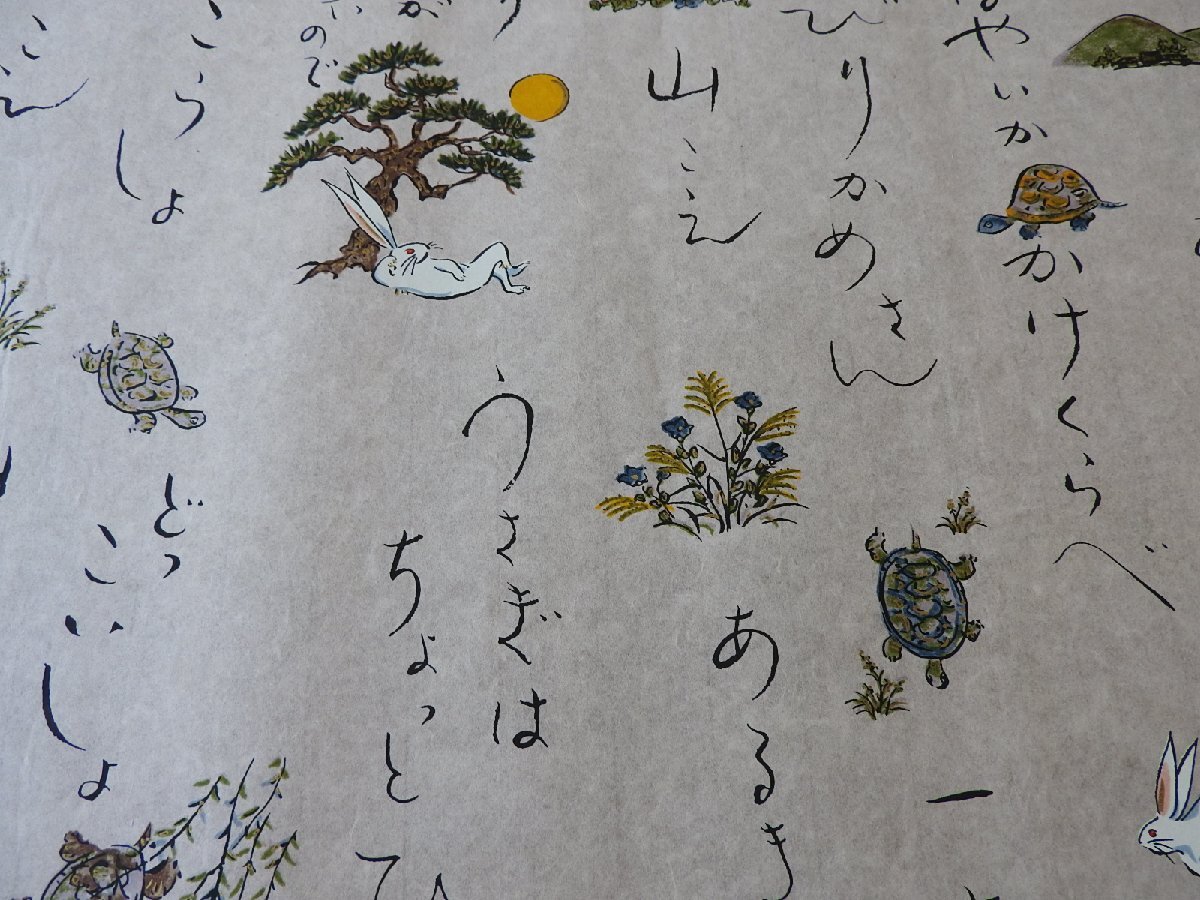 はやいか
かけくらべ
一
びりかめさん
あるき
山こえ
うさぎは
ちょっと
ひ
が
いので
こらしょ
どっ
こいしょ
こえ